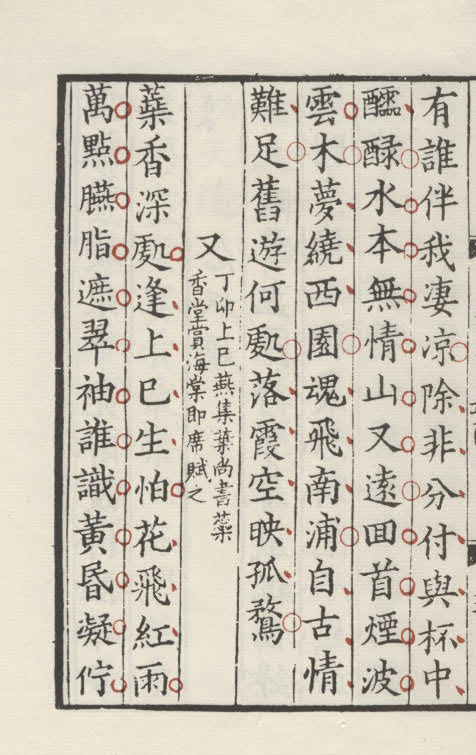 有誰伴我凄凉除非分付與杯中
醽醁水本無情山又遠回首煙波
雲木夢繞西園魂飛南浦自古情
難足舊遊何處落霞空映孤鶩
又
丁卯上巳燕集葉尚書蘂
香堂賞海棠即席賦之
蘂香深處逢上巳生怕花飛紅雨
萬點臙脂遮翠袖誰識黃昏凝佇